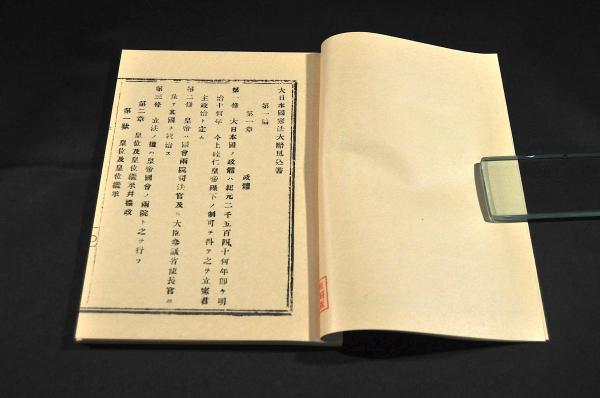 大日本國憲法大略見込書
第一編
第一章 政體
第一條 大日本國ノ政體ハ紀元二千五百四十何年卽チ明
治十何年 今上睦仁皇帝陛下ノ制可ヲ得テ之ヲ立憲君
主政治ト定ム
第二條 皇帝ハ國會兩院司法官及ヒ大臣參議省使長官ニ
依テ其國ヲ統治ス
第三條 立法ノ權ハ皇帝國會ノ兩院ト之ヲ行フ
第二章 皇位及皇位繼承幷攝政
第一款 皇位及皇位繼承